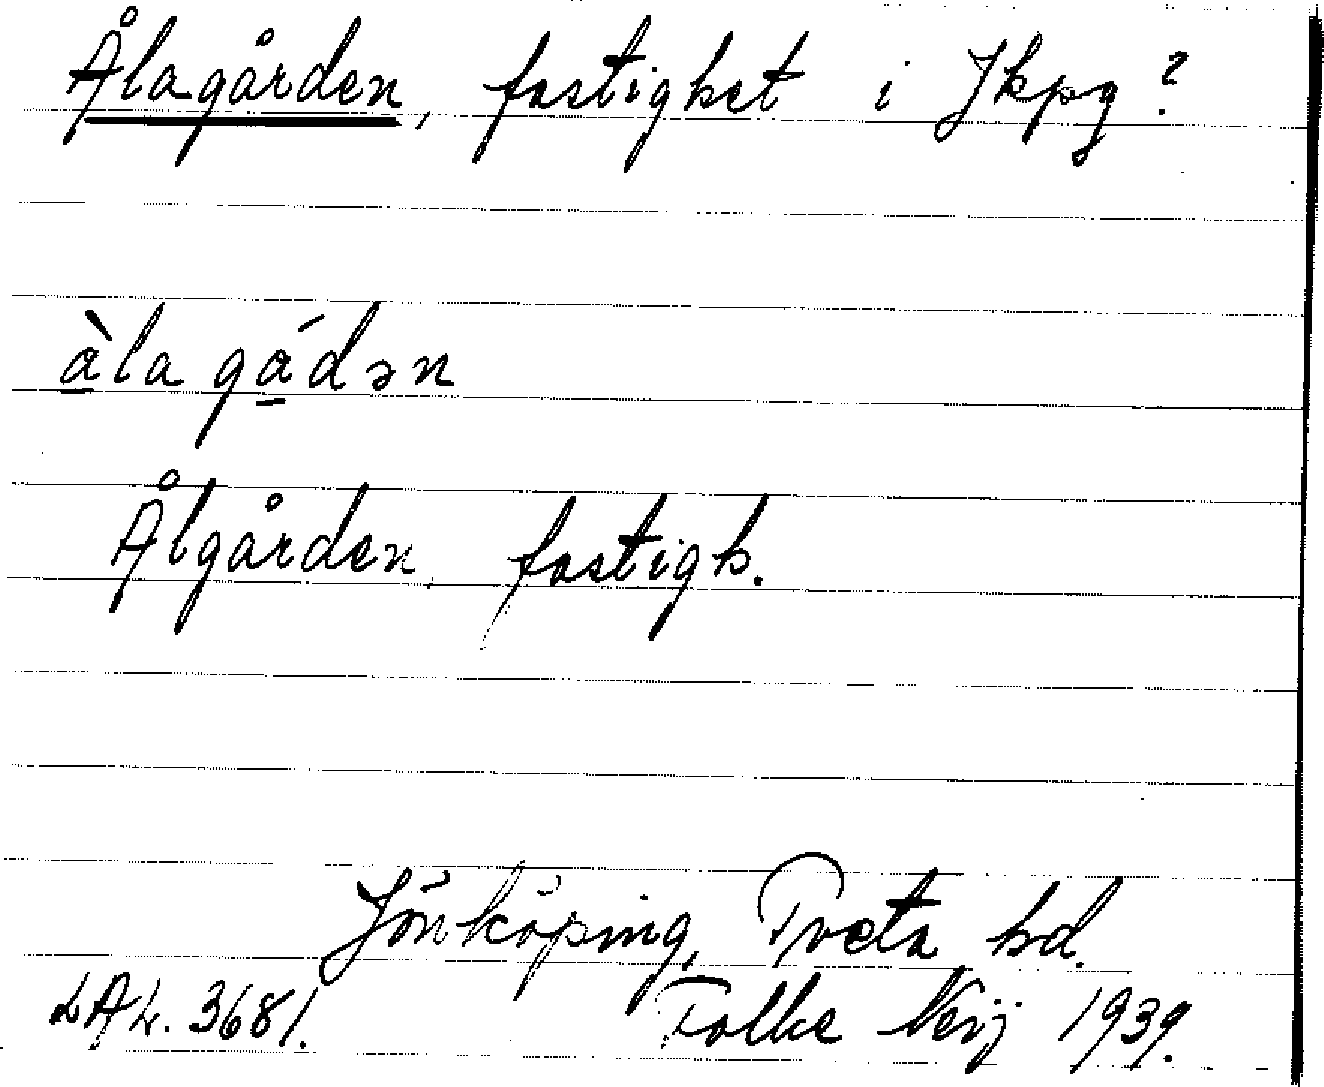 Ålagården, fastighet i Jkpg?
å̱̀la gǻ̱dən
Ålgården, fastigh.
Jönköping, Tveta hd.
LAL. 3681. Folke Neij 1939.